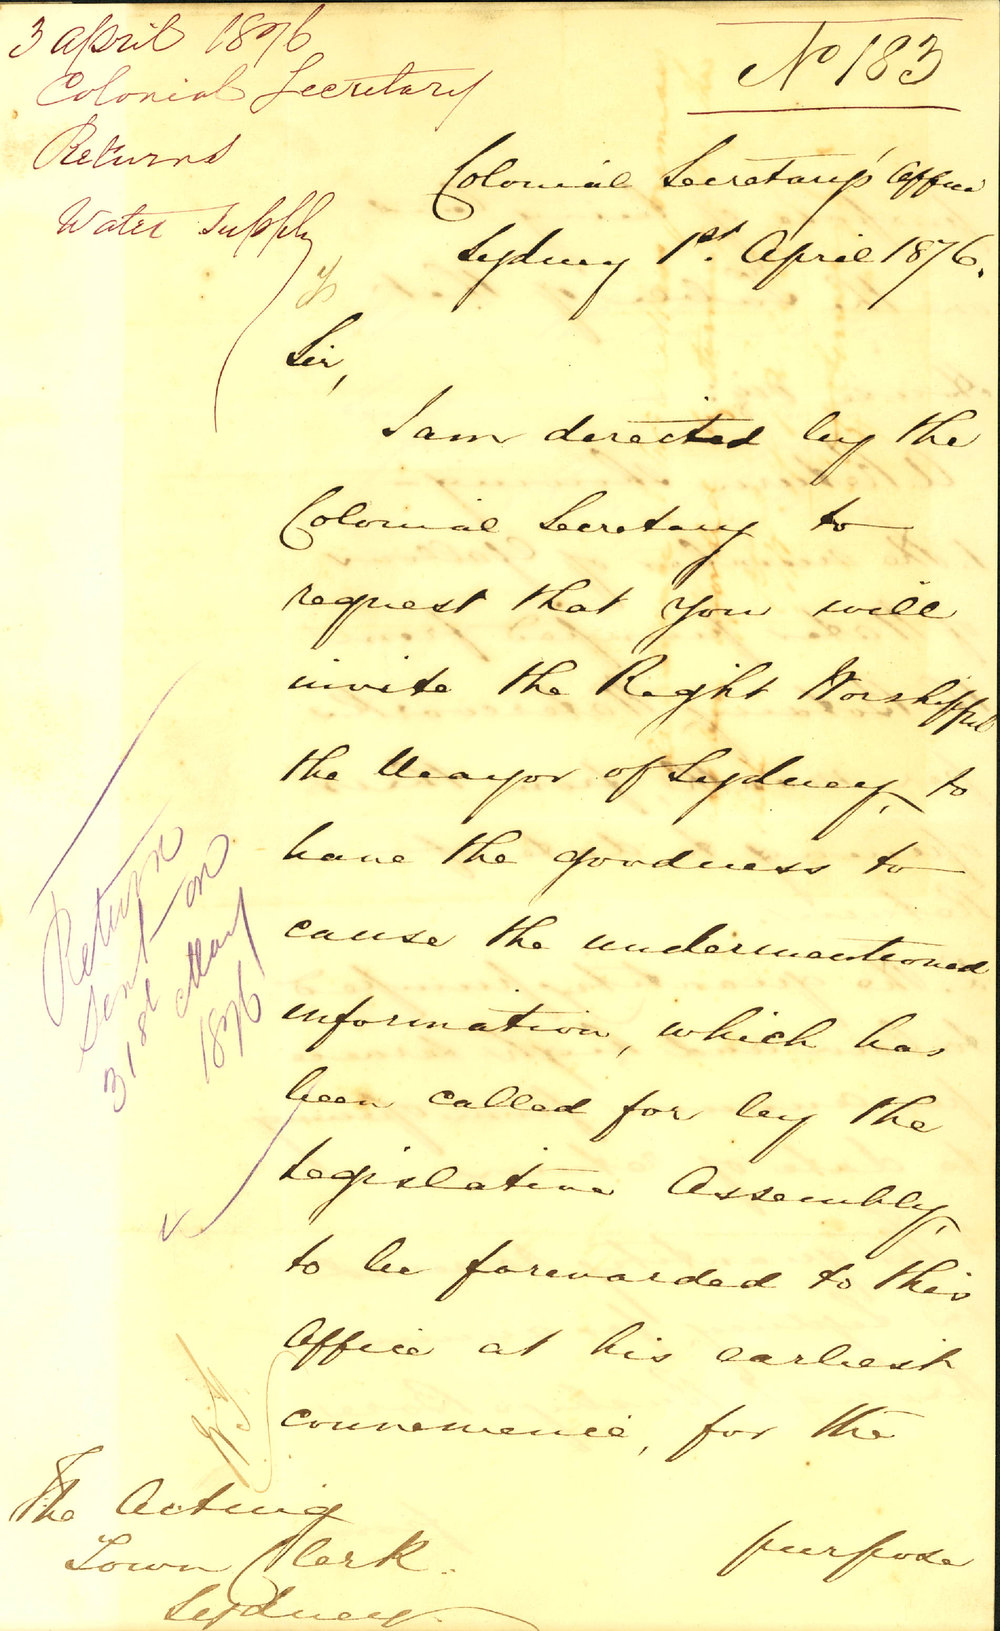 3 April 1876
Colonial Secretary
Returns
Water Supply
No 183
Colonial Secretary's Office
Sydney 1st. April 1876.
Sir,
I am directed by the
Colonial Secretary to
request that you will
invite the Right Worshipful
the Mayor of Sydney, to
have the goodness to
cause the undermentioned
information, which has
been called for by the
Legislative Assembly,
to be forwarded to this
Office at his earliest
convenience, for the
purpose
The Acting
Town Clerk.
Sydney.
Return
Sent on
31st May
1876